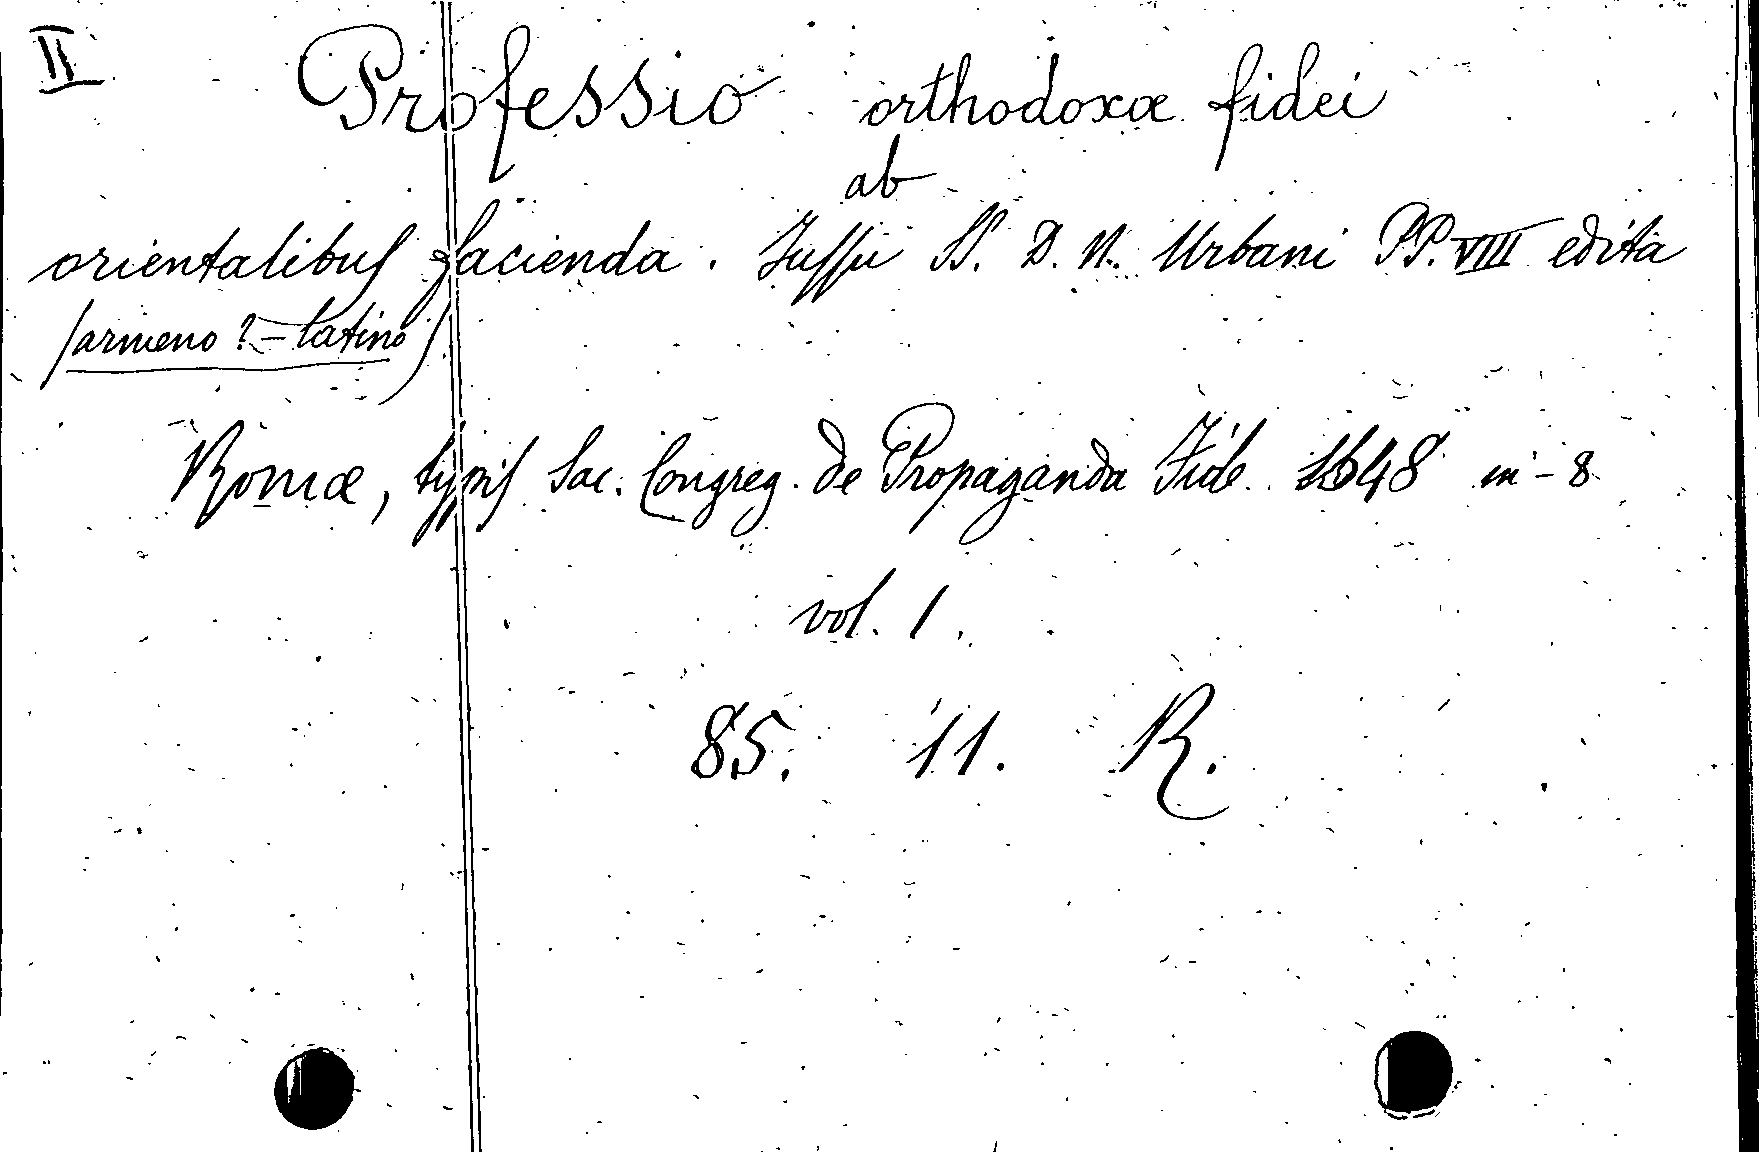 II
Professio orthodoxæ fidei
ab
orientalibus facienda. Jussu SS. D. N. Urbani PP. VIII edita
(armeno ? - latino)
Romæ, typis Sac. Congreg. de Propaganda Fide. 1648 in-8
vol. 1.
85. 11. R.